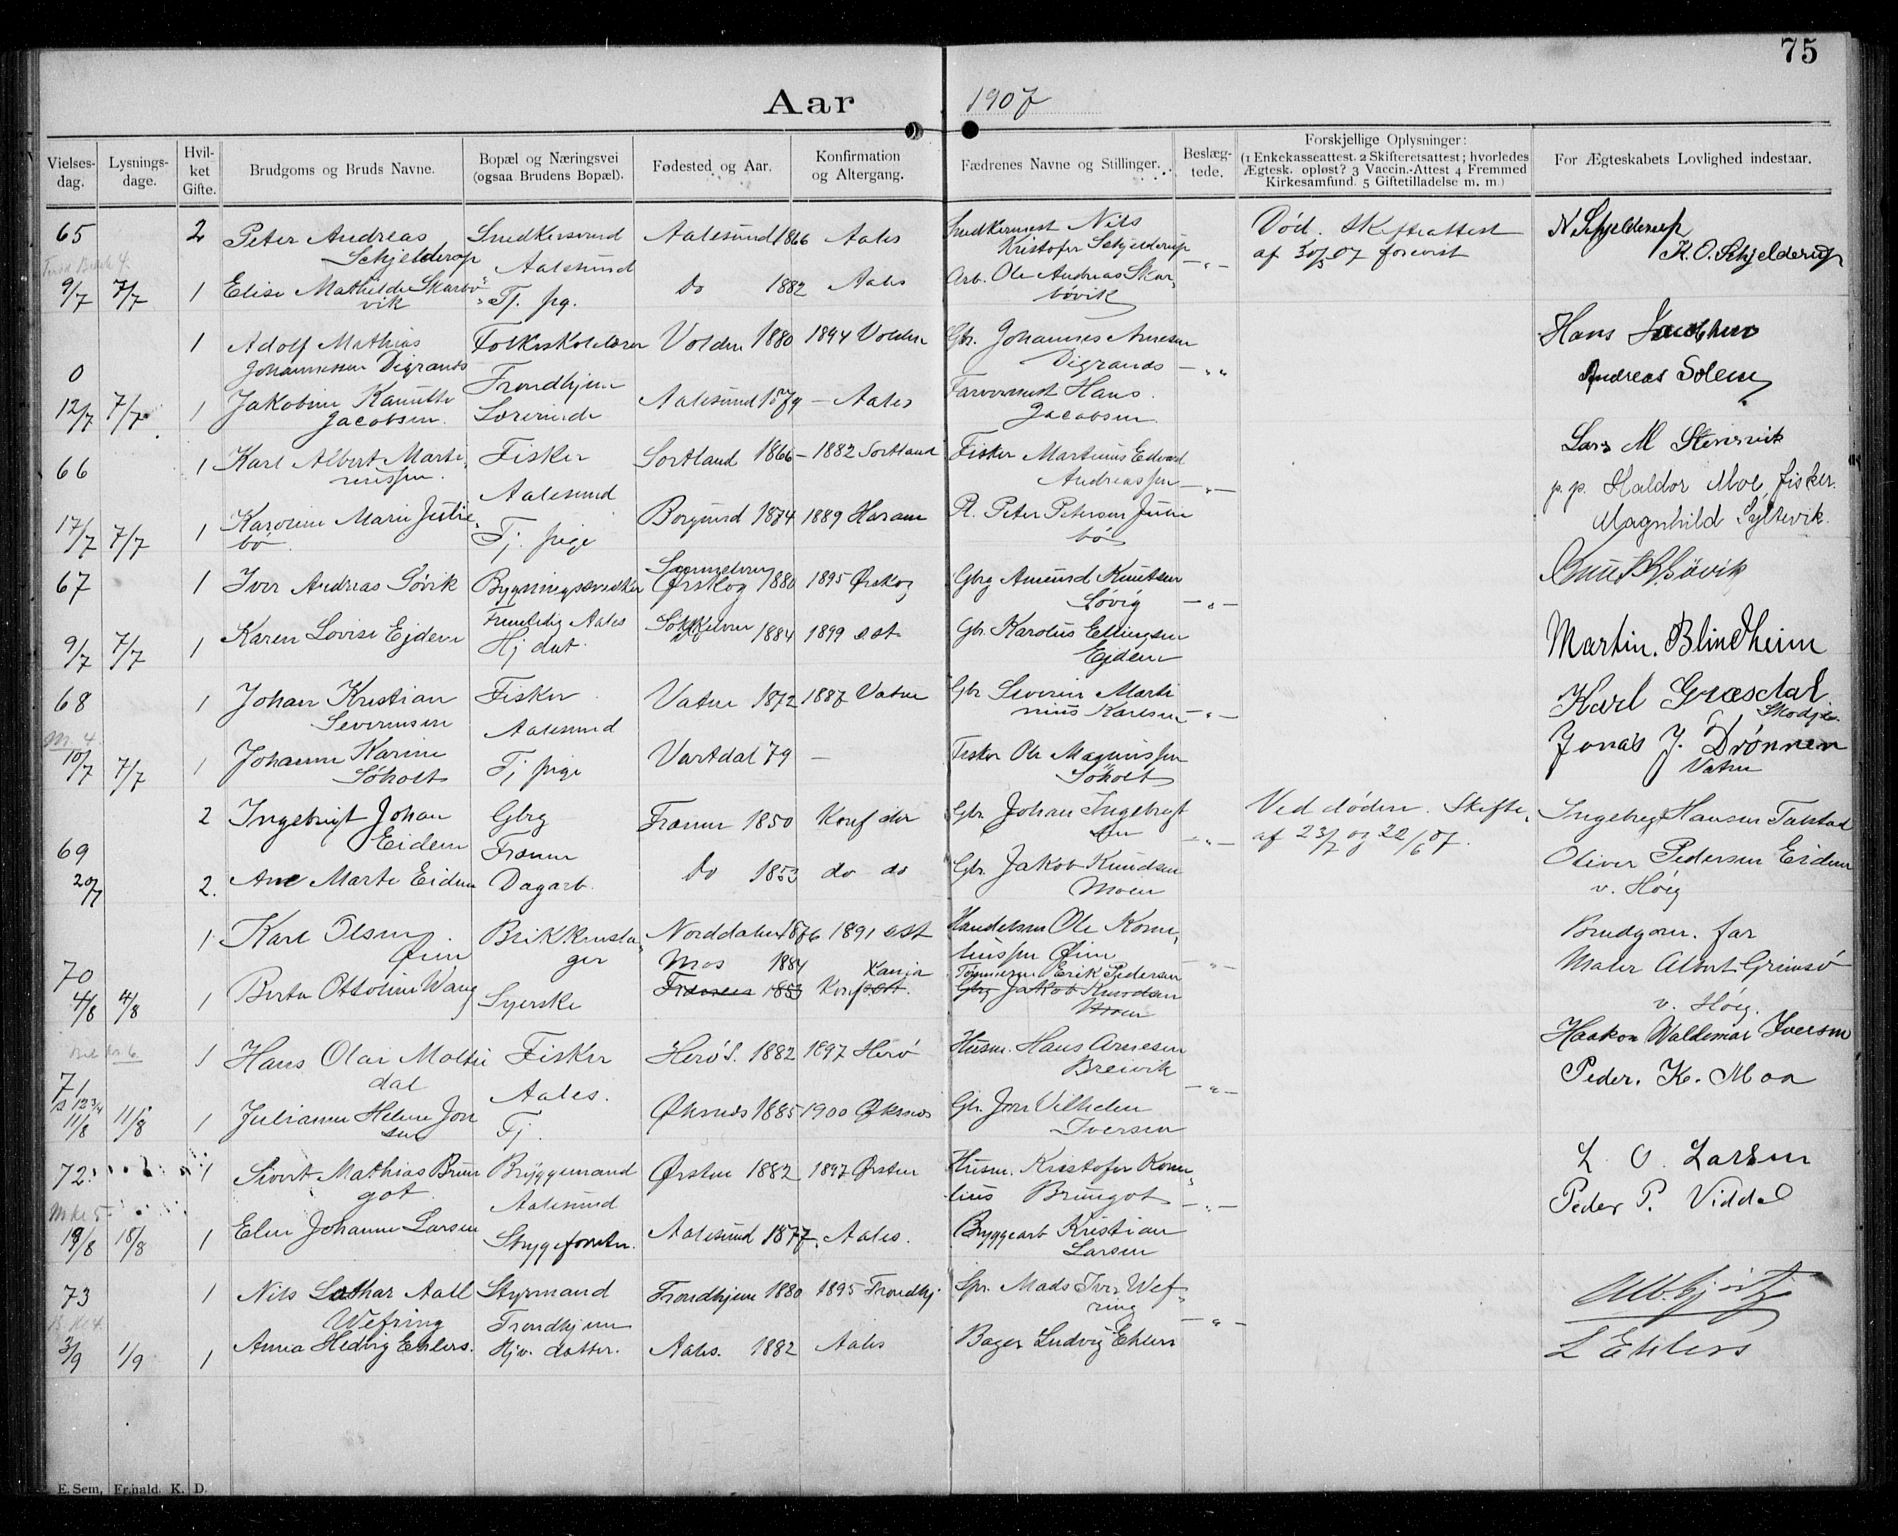 75
Aar 1907
Vielses-dag. Lysnings-dage. Hvil-ket Gifte. Brudgoms og Bruds Navne. Bopæl og Næringsvei (ogsaa Brudens Bopæl). Fødested og Aar. Konfirmation og Altergang. Fædrenes Navne og Stillinger. Beslæg-tede. Forskjellige Oplysninger: (1 Enkekasseattest. 2 Skifteretsattest; hvorledes Ægtesk. opløst? 3 Vaccin.-Attest 4 Fremmed Kirkesamfund. 5 Giftetilladelse m. m.) For Ægteskabets Lovlighed indestaar.
65 2 Peter Andreas Snedkersvend Aalesund 1866 Aales Snedkermest Nils Død. Skifteattest N Schjelderup
Schjelderup Aalesund Kristofer Schjelderup - " - af 30/3 07 forevist K. O. Schjelderup
9/7 7/7 1 Elise Mathilde Skarbø- Tj. pg. do 1882 Aales Arb. Ole Andreas Skar-
vik bøvik
1 Adolf Mathias Folkeskolelærer Volden 1880 1894 Volden Gbr. Johannes Arnesen Hans Jacobsen
0 Johannessen Digranes Trondhjem Digranes - " Andreas Solem
12/7 7/7 1 Jakobine Kanutte Lærerinde Aalesund 1879 - Aales Farvermest Hans
Jacobsen. Jacobsen
66 1 Karl Albert Marti- Fisker Sortland 1866 - 1882 Sortland Fisker Martinus Edvard Lars M Stensvik
nussen Aalesund Andreassen - " - p.p. Haldor Moe, fisker.
17/7 7/7 1 Karoline Marie Julie- Tj. pige Borgund 1874 1889 Haram Pl. Peter Petersen Juue Magnhild Syltevik.
bø. bø
67 1 Iver Andreas Søvik Bygningssnedker Ørskog 1880 1895 Ørskog Gbrg Amund Knutsen Knut K Søvik
Søvig - " -
9/7 7/7 1 Karen Lovise Ejdem Aales 1884 1899 sst Gbr. Karolus Ellingsen Martin. Blindheim
Hj dat. Ejdem
68 1 Johan Kristian Fisker Vatne 1872 1887 Vatne Gbr Severin Marti Karl Græsdal
Severinsen Aalesund nius Karlsen - " - Skodje.
10/7 7/7 1 Johanne Karine Tj pige Vartdal 79 - Fisker Ole Magnussen Jonas J. Drønnen
Søholt Søholt Vatne
2 Ingebrigt Johan Gbrg Frænen 1850 Konf der Gbr Johan Ingebrigt Ved døden. Skifte- Ingebrigt Hansen Talstad
Eidem Frænen sen - " - af 23/7 og 22/6 07. Oliver Pedersen Eidem
69 20/7 2. Ane Marte Eidem Dagarb. do 1853 do do Gbr. Jakob Knudsen v. Høig
Moen
1 Karl Olsen Norddalen 1876 1891 sst Handelsm Ole Korne- Brudgom. far
70 Øien Mos 1884 liussen Øien - " - Maler Albert Grimsø
4/8 4/8 1 Berta Ottoline Wang Syerske Frænen 1853 Konf sst. Erik Pedersen v. Høig.
Gbrg Jakob Knudsen
Moen
1 Hans Olai Molte Fisker Herø S. 1882 1897 Herø Husm. Hans Arnesen Haakon Waldemar Iversen
dal Aales. Breivik Peder. K. Moa
71 11/8 11/8 1 Julianne Helene Jon Tj. Øksnes 1885 1900 Øksnes Gbr. Jon Vilhelm - " -
sen Iversen
72. 1 Sivert Mathias Brun Bryggemand Ørsten 1882 1897 Ørsten Husm. Kristofer Korne- L O. Larsen
got. Aalesund lius Brungot - " - Peder P. Viddal
18/8 18/8 1 Elen Johanne Larsen Aalesund 1877. Aales. Bryggearb Kristian
Larsen
73 1 Nils Lothar Aall Styrmand Trondhjem 1880 1895 Trondhj Spr. Mads Iver Wef-
Wefring Trondhjem ring - " -
3/9 1/9 1 Anna Hedvig Ehlers. Hjv. datter. Aales. 1882 Aales Bager Ludvig Ehlers L Ehlers
E. Sem, Fr.hald. K. D.